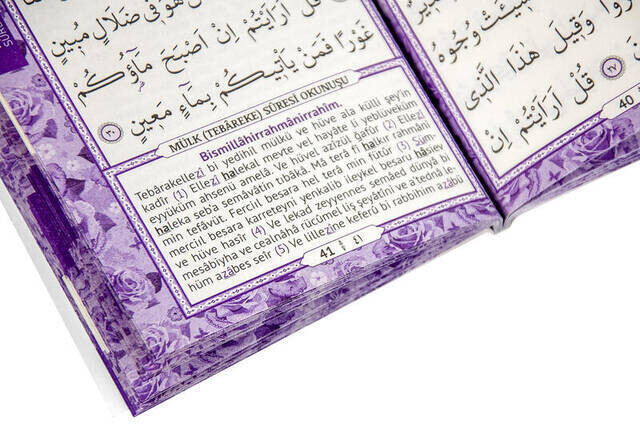 غَوْرًا فَمَنْ يَأْتِيكُمْ بِمَاءٍ مَعِينٍ
ضَلَالٍ مُبِينٍ
قُلْ اَرَاَيْتُمْ اِنْ اَصْبَحَ مَٓاؤُ۬كُمْ
٣٠
MÜLK (TEBÂREKE) SÛRESİ OKUNUŞU
Bismillâhirrahmânirrahîm.
Tebârakellezî bi yedihil mülkü ve hüve alâ külli şey'in
kadîr (1) Ellezî halekal mevte vel hayâte li yeblüveküm
eyyüküm ahsenü amelâ. Ve hüvel azîzül ğafûr (2) Ellezî
haleka seb'a semâvâtin tıbâkâ. Mâ terâ fî halkır rahmâni
min tefâvüt. Ferciıl besara hel terâ min fütûr (3) Sum-
merciıl besara karreteyni yenkalib ileykel besaru hâsiev
ve hüve hasîr (4) Ve lekad zeyyennes semâed dünyâ bi
mesâbîyha ve cealnâhâ rücûmel liş şeyâtîni ve a'tednâ le-
hüm azâbes seîr (5) Ve lillezîne keferû bi rabbihim azâbü
41 ٤١
وَقِيلَ هٰذَا الَّذِي
٢٧
قُلْ اَرَاَيْتُمْ اِنْ
40